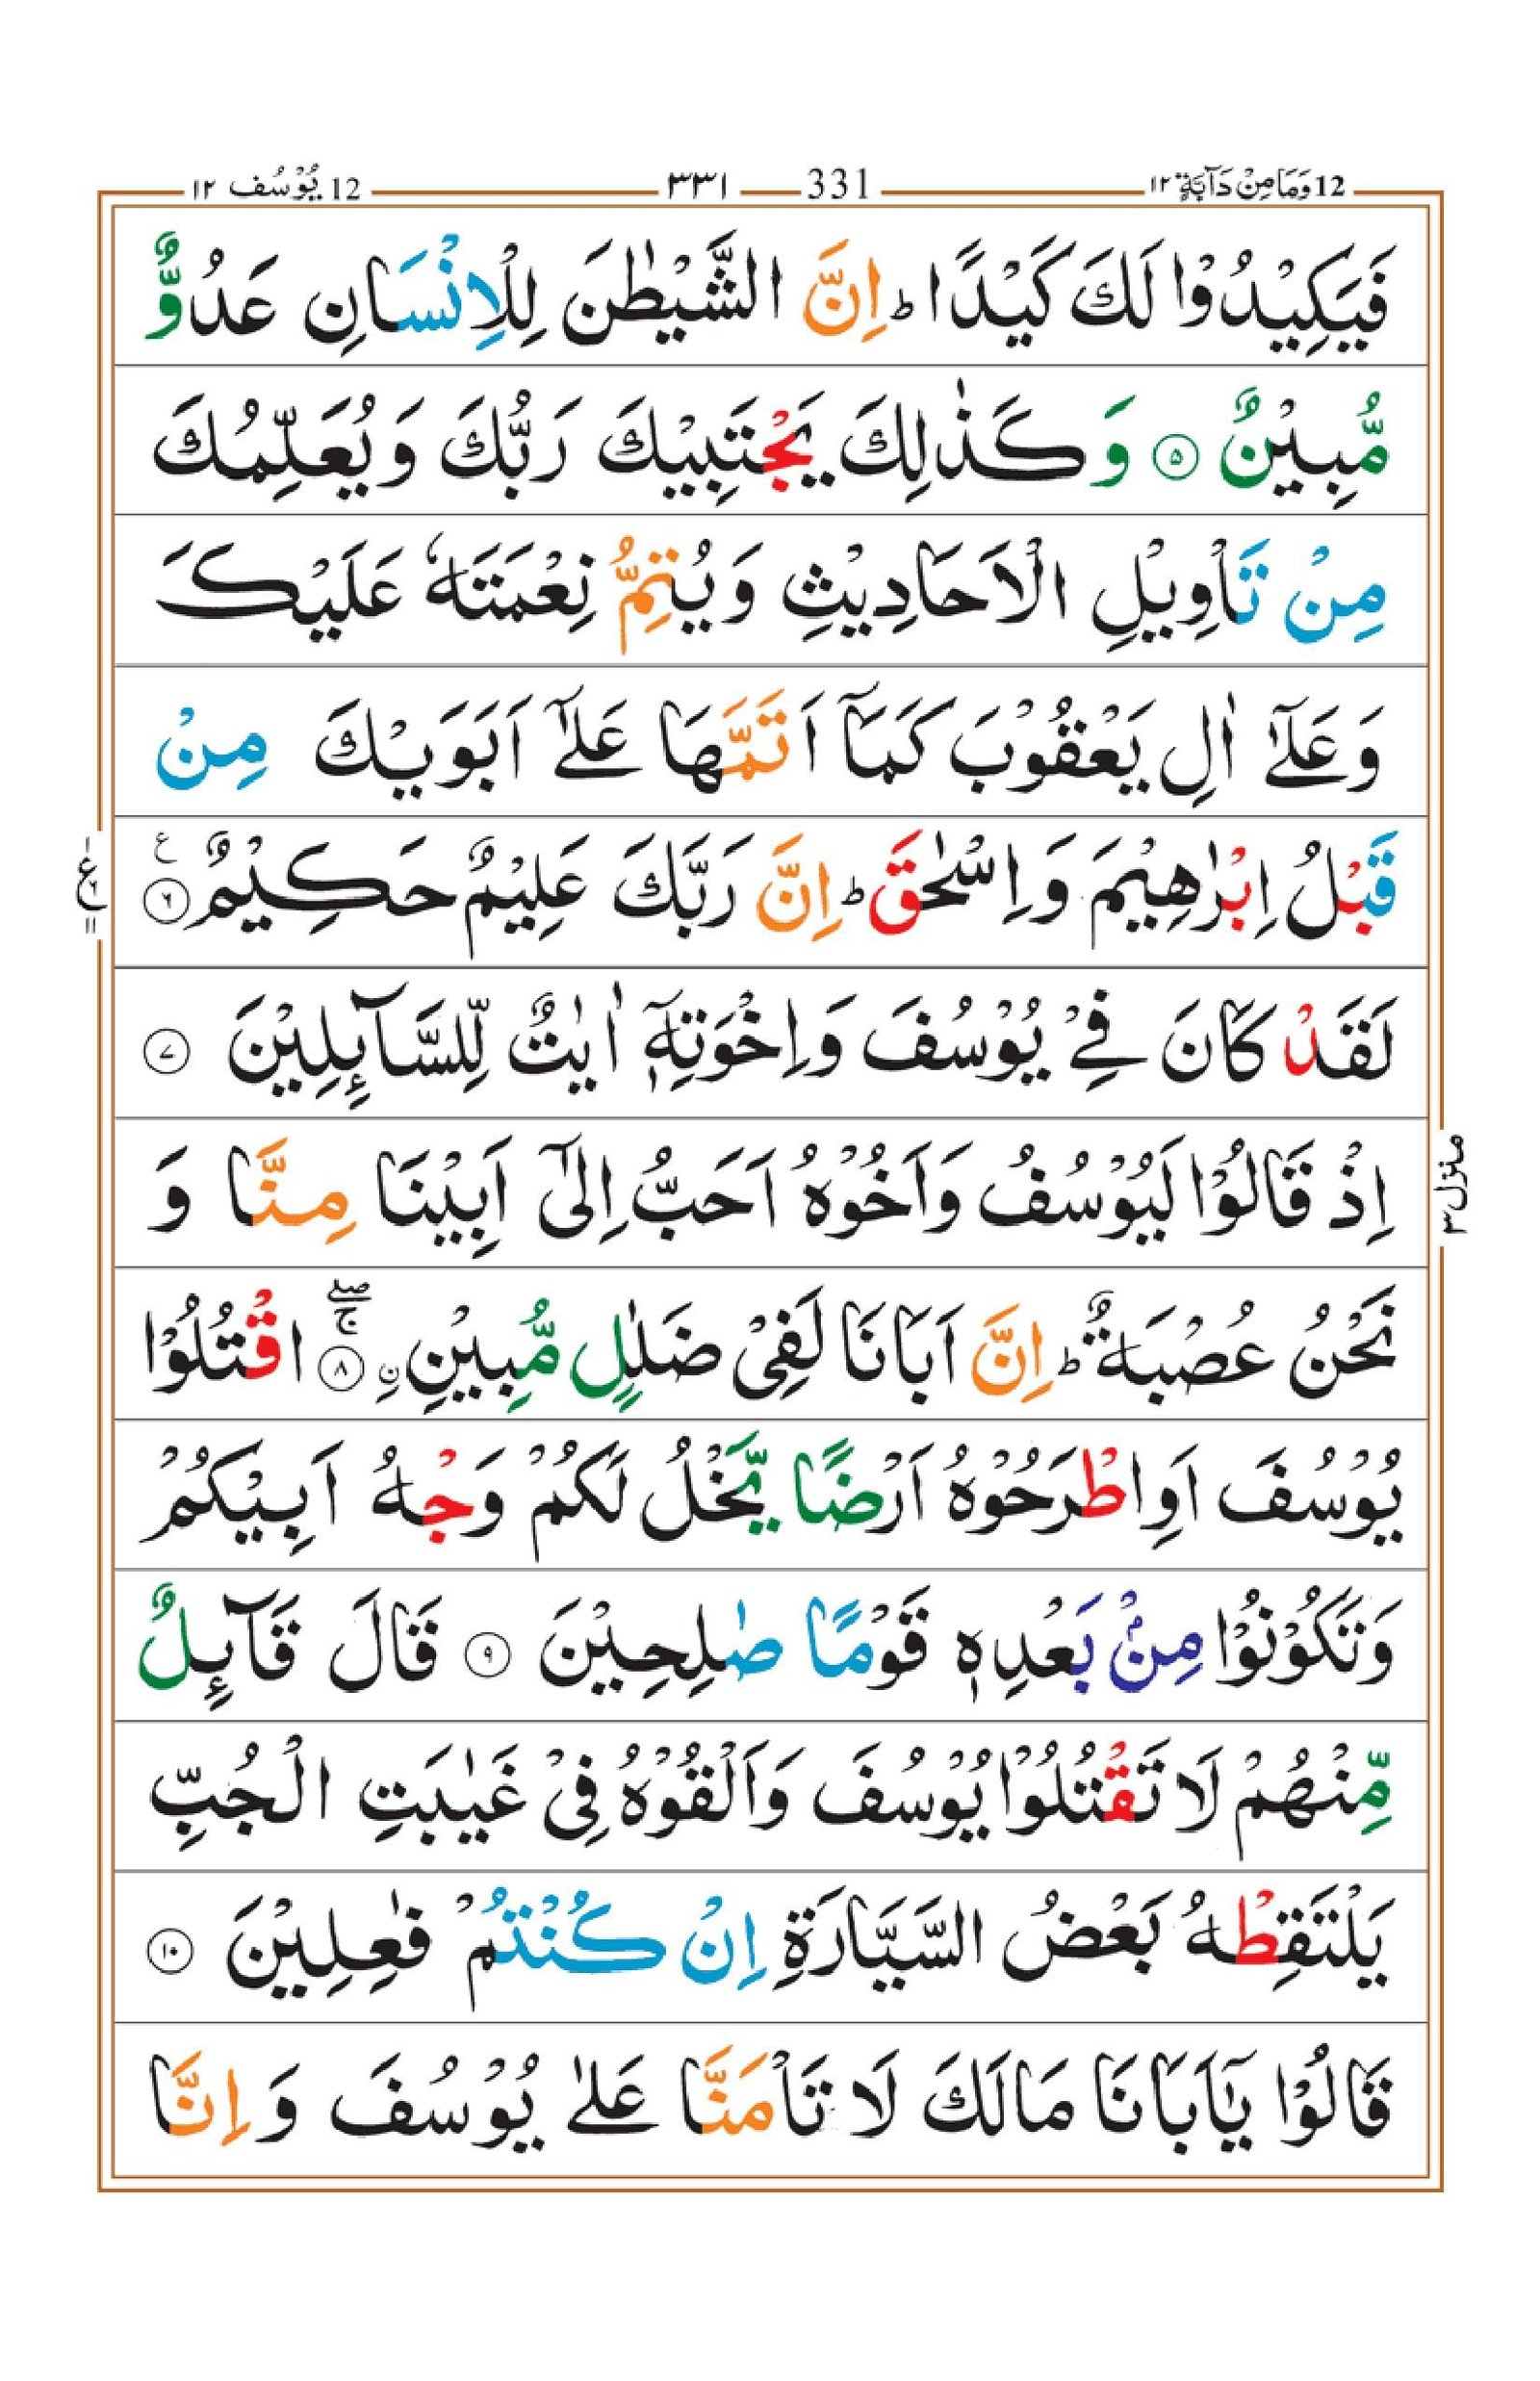 12 وَمَا مِنْ دَآبَّةٍ ١٢ 331 ٣٣١ 12 يُوْسُف ١٢
فَيَكِيْدُوْا لَكَ كَيْدًا ؕ اِنَّ الشَّيْطٰنَ لِلْاِنْسَانِ عَدُوٌّ
مُّبِيْنٌ ۝۵ وَ كَذٰلِكَ يَجْتَبِيْكَ رَبُّكَ وَيُعَلِّمُكَ
مِنْ تَاْوِيْلِ الْاَحَادِيْثِ وَيُتِمُّ نِعْمَتَهٗ عَلَيْكَ
وَعَلٰٓى اٰلِ يَعْقُوْبَ كَمَآ اَتَمَّهَا عَلٰٓى اَبَوَيْكَ مِنْ
قَبْلُ اِبْرٰهِيْمَ وَاِسْحٰقَ ؕ اِنَّ رَبَّكَ عَلِيْمٌ حَكِيْمٌ ۝۶ ع
ع ۶ ۱۱
لَقَدْ كَانَ فِيْ يُوْسُفَ وَاِخْوَتِهٖٓ اٰيٰتٌ لِّلسَّآئِلِيْنَ ۝۷
اِذْ قَالُوْا لَيُوْسُفُ وَاَخُوْهُ اَحَبُّ اِلٰٓى اَبِيْنَا مِنَّا وَ
منزل ۳
نَحْنُ عُصْبَةٌ ؕ اِنَّ اَبَانَا لَفِيْ ضَلٰلٍ مُّبِيْنِ ۣۙ ۝۸ ج صلے اقْتُلُوْا
يُوْسُفَ اَوِ اطْرَحُوْهُ اَرْضًا يَّخْلُ لَكُمْ وَجْهُ اَبِيْكُمْ
وَتَكُوْنُوْا مِنْۢ بَعْدِهٖ قَوْمًا صٰلِحِيْنَ ۝۹ قَالَ قَآئِلٌ
مِّنْهُمْ لَا تَقْتُلُوْا يُوْسُفَ وَاَلْقُوْهُ فِيْ غَيٰبَتِ الْجُبِّ
يَلْتَقِطْهُ بَعْضُ السَّيَّارَةِ اِنْ كُنْتُمْ فٰعِلِيْنَ ۝۱۰
قَالُوْا يٰٓاَبَانَا مَالَكَ لَا تَاْمَنَّا عَلٰى يُوْسُفَ وَ اِنَّا